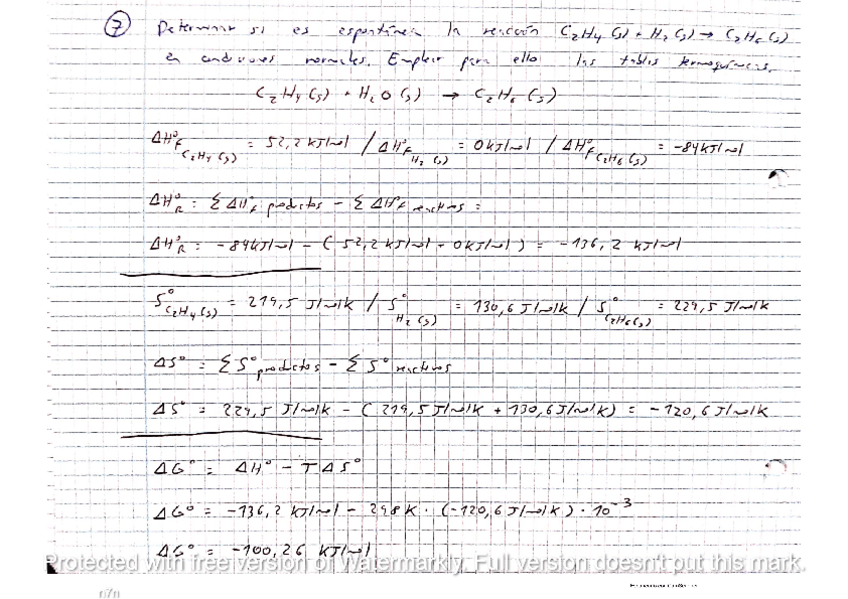 7 Determinar si es espontánea la reacción C₂H₄(g) + H₂(g) → C₂H₆(g)
en condiciones normales. Emplear para ello las tablas termoquímicas.
C₂H₄(g) + H₂O(g) → C₂H₆(g)
ΔH°f C₂H₄(g) = 52,2 kJ/mol / ΔH°f H₂(g) = 0 kJ/mol / ΔH°f C₂H₆(g) = -84 kJ/mol
ΔH°R = Σ ΔH°f productos - Σ ΔH°f reactivos =
ΔH°R = -84 kJ/mol - (52,2 kJ/mol + 0 kJ/mol) = -136,2 kJ/mol
S° C₂H₄(g) = 219,5 J/molK / S° H₂(g) = 130,6 J/molK / S° C₂H₆(g) = 229,5 J/molK
ΔS° = Σ S° productos - Σ S° reactivos
ΔS° = 229,5 J/molK - (219,5 J/molK + 130,6 J/molK) = -120,6 J/molK
ΔG° = ΔH° - TΔS°
ΔG° = -136,2 kJ/mol - 298K · (-120,6 J/molK) · 10⁻³
ΔG° = -100,26 kJ/mol
Protected with free version of Watermarkly. Full version doesn't put this mark.